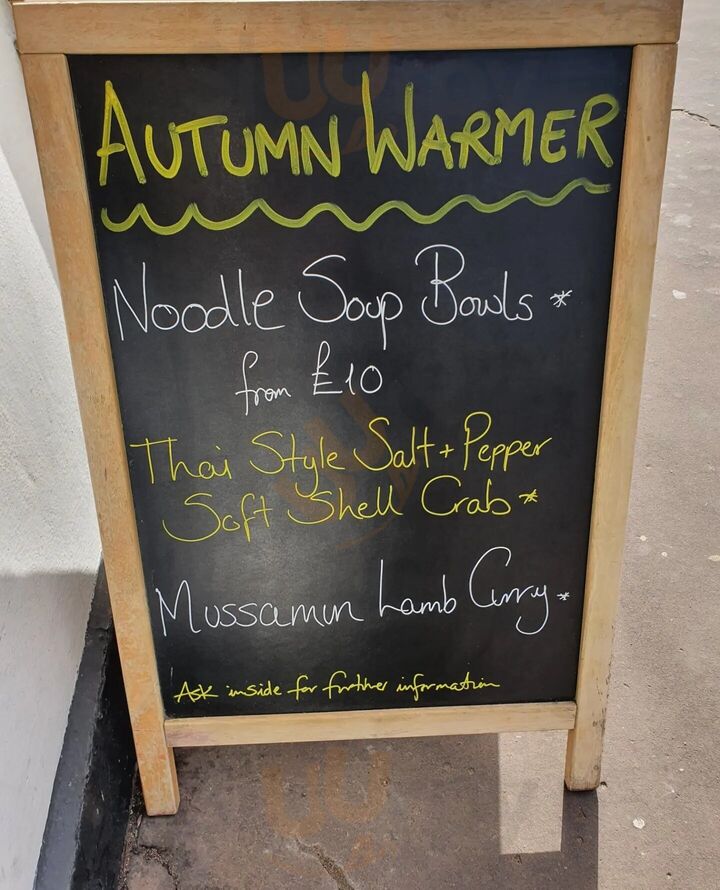 AUTUMN WARMER
Noodle Soup Bowls *
from £10
Thai Style Salt + Pepper
Soft Shell Crab *
Mussamun Lamb Curry *
Ask inside for further information